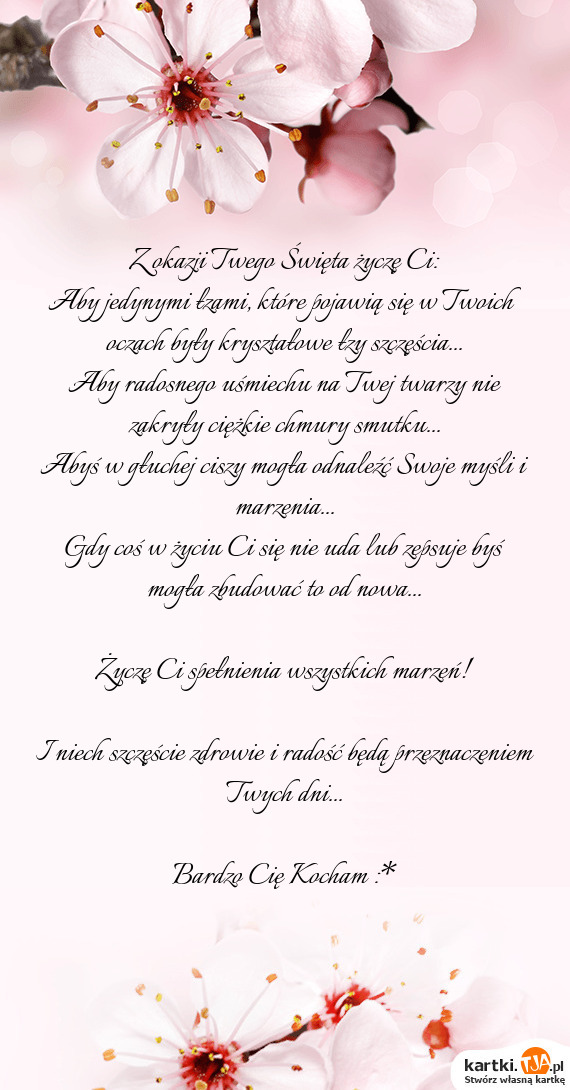 Z okazji Twego Święta życzę Ci:
Aby jedynymi łzami, które pojawią się w Twoich
oczach były kryształowe łzy szczęścia...
Aby radosnego uśmiechu na Twej twarzy nie
zakryły ciężkie chmury smutku...
Abyś w głuchej ciszy mogła odnaleźć Swoje myśli i
marzenia...
Gdy coś w życiu Ci się nie uda lub zepsuje byś
mogła zbudować to od nowa...
Życzę Ci spełnienia wszystkich marzeń!
I niech szczęście zdrowie i radość będą przeznaczeniem
Twych dni...
Bardzo Cię Kocham :*
kartki.TJA.pl
Stwórz własną kartkę